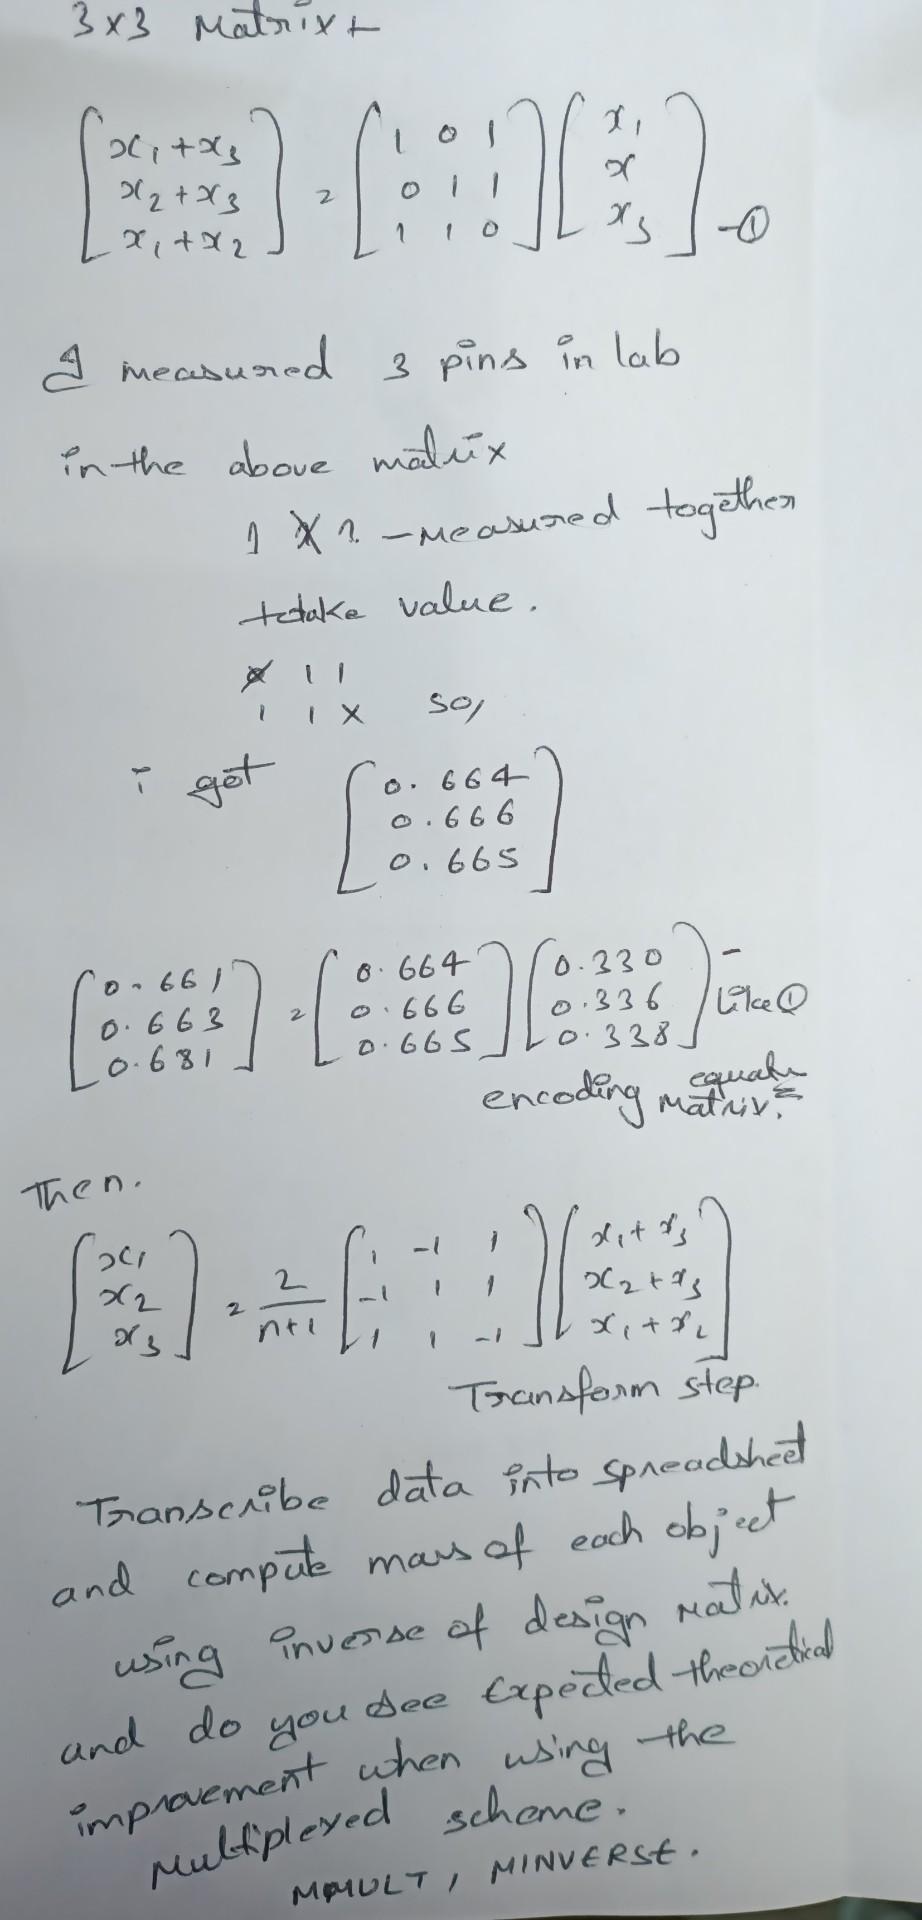 3x3 Matrix
[x₁+x₃
x₂+x₃
x₁+x₂] = [1 0 1
0 1 1
1 1 0] [x₁
x
x₃] -①
I measured 3 pins in lab
in the above matrix
1 X 1 - Measured together
take value.
x 1 1
1 1 x so,
i get [0.664
0.666
0.665]
[0.661
0.663
0.681] = [0.664
0.666
0.665] [0.330
0.336
0.338] - like ①
encoding matrix.
Then.
[x₁
x₂
x₃] = 2/n+1 [1 -1 1
-1 1 1
1 1 -1] [x₁+x₃
x₂+x₃
x₁+x₂]
Transform step.
Transcribe data into spreadsheet
and compute mass of each object
using inverse of design Matrix.
and do you see Expected theoretical
improvement when using the
Multiplexed scheme.
MMULT, MINVERSE.